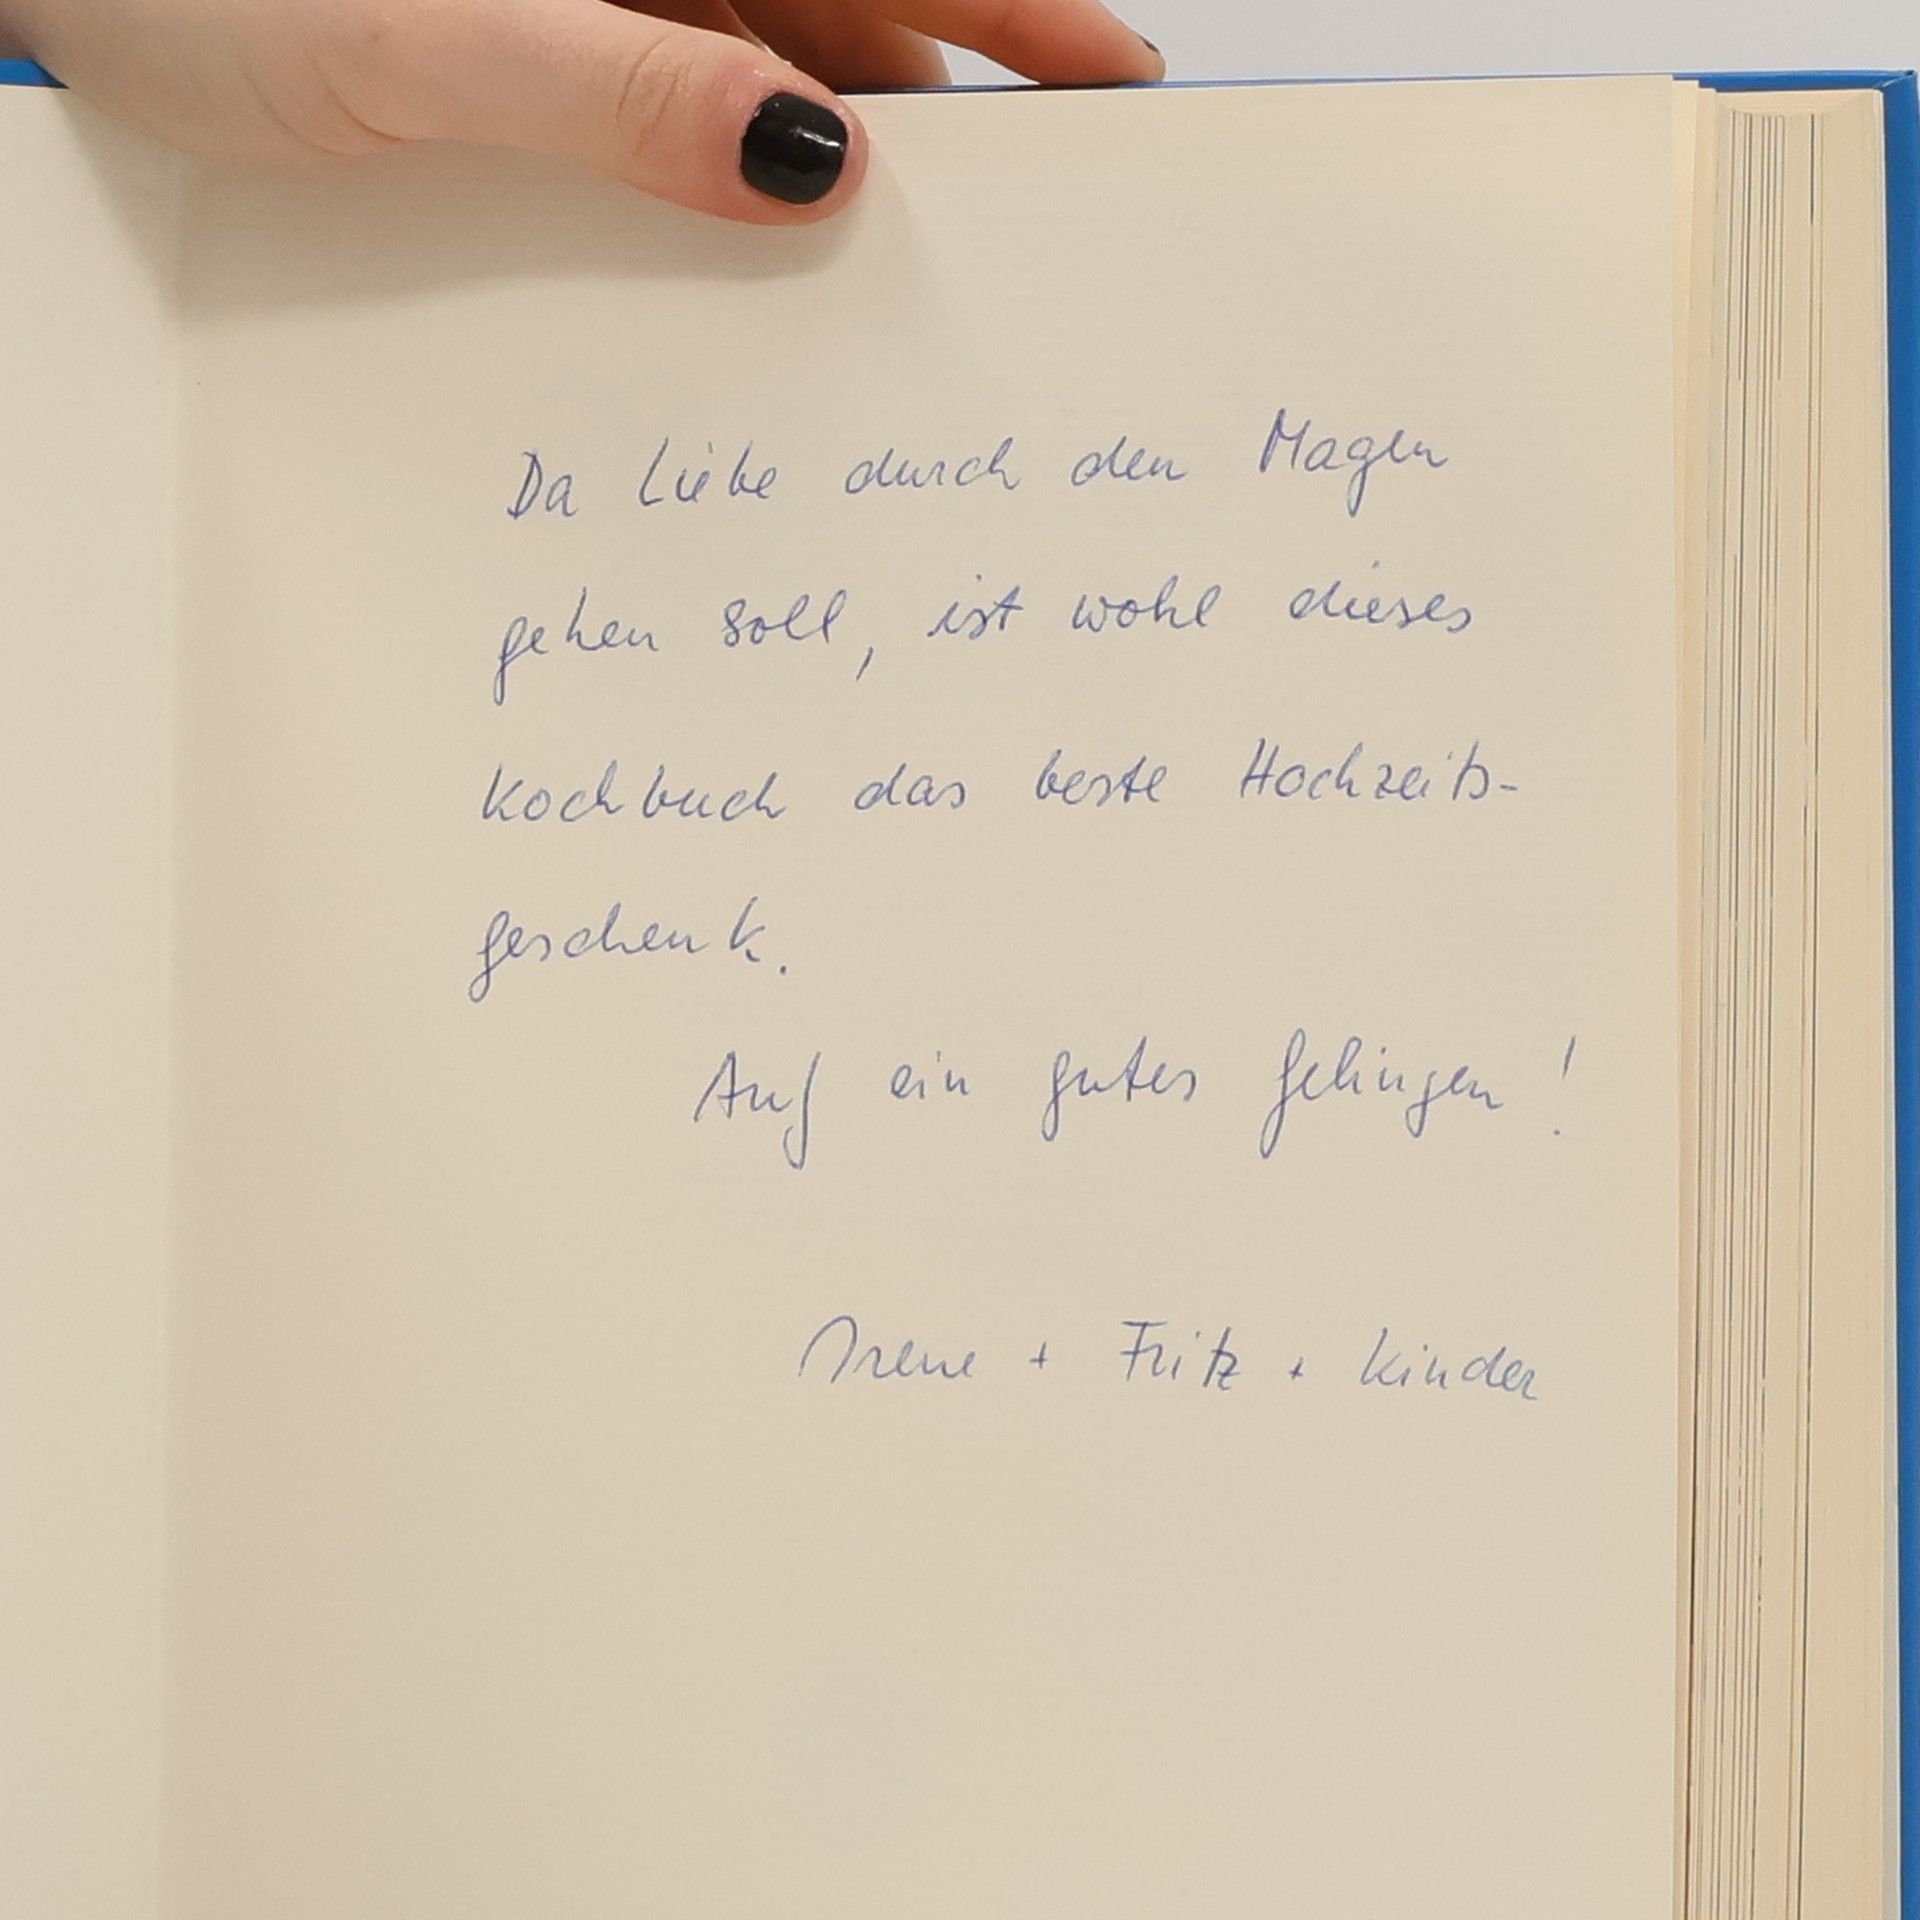 Da Liebe durch den Magen
gehen soll, ist wohl dieses
Kochbuch das beste Hochzeits-
geschenk.
Auf ein gutes Gelingen!
Irene + Fritz + Kinder